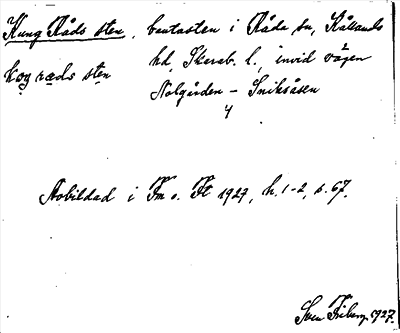 Kung Råds sten, bautasten i Råda sn, Kållands
kog råds stẹn hd, Skarab. l., invid vägen
Nolgården – Sniksåsen
4
Avbildad i Fm o. Ft 1927, h. 1-2, s. 67.
Sven Friberg 1927.